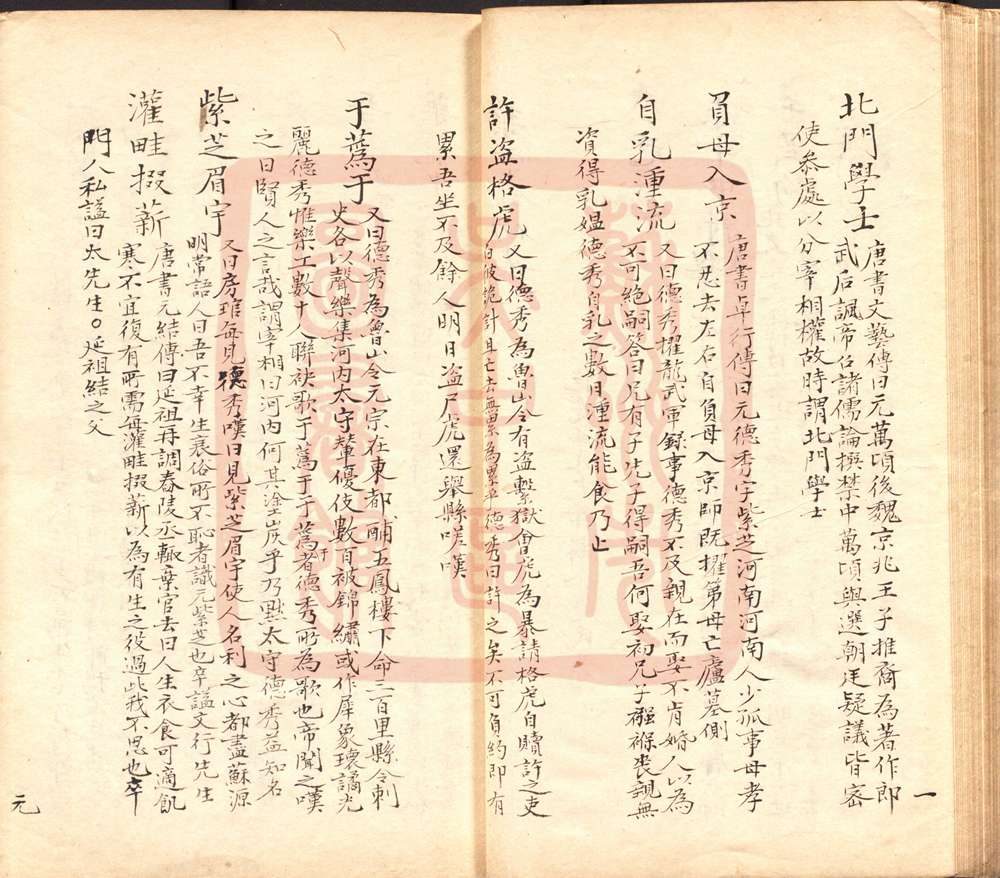 一
北門學士 唐書文藝傳曰元萬頃後魏京兆王子推裔為著作郎
武后諷帝召諸儒論撰禁中萬頃與選朝廷疑議皆密
使參處以分宰相權故時謂北門學士
負母入京 唐書卓行傳曰元德秀字紫芝河南河南人少孤事母孝
不忍去左右自負母入京師既擢第母亡廬墓側
自乳湩流 又曰德秀擢龍武軍錄事德秀不及親在而娶不肯婚人以為
不可絕嗣答曰兄有子先子得嗣吾何娶初兄子襁褓喪親無
資得乳媼德秀自乳之數日湩流能食乃止
許盜格虎 又曰德秀為魯山令有盜繫獄會虎為暴請格虎自贖許之吏
白彼詭計且亡去無累為累乎德秀曰許之矣不可負約即有
累吾坐不及餘人明日盜尸虎還舉縣嘆嘆
于蒍于 又曰德秀為魯山令元宗在東都酺五鳳樓下命三百里縣令刺
史各以聲樂集河內太守輦優伎數百被錦繡或作犀象瓌譎光
麗德秀惟樂工數十人聯袂歌于蒍于于蒍于者德秀所為歌也帝聞之嘆
之曰賢人之言哉謂宰相曰河內何其塗炭乎乃黜太守德秀益知名
紫芝眉宇 又曰房琯每見德秀嘆曰見紫芝眉宇使人名利之心都盡蘇源
明常語人曰吾不幸生衰俗所不恥者識元紫芝也卒謚文行先生
灌畦掇薪 唐書元結傳曰延祖再調舂陵丞輒棄官去曰人生衣食可適飢
寒不宜復有所需每灌畦掇薪以為有生之役過此我不思也卒
門人私謚曰太先生○延祖結之父
元